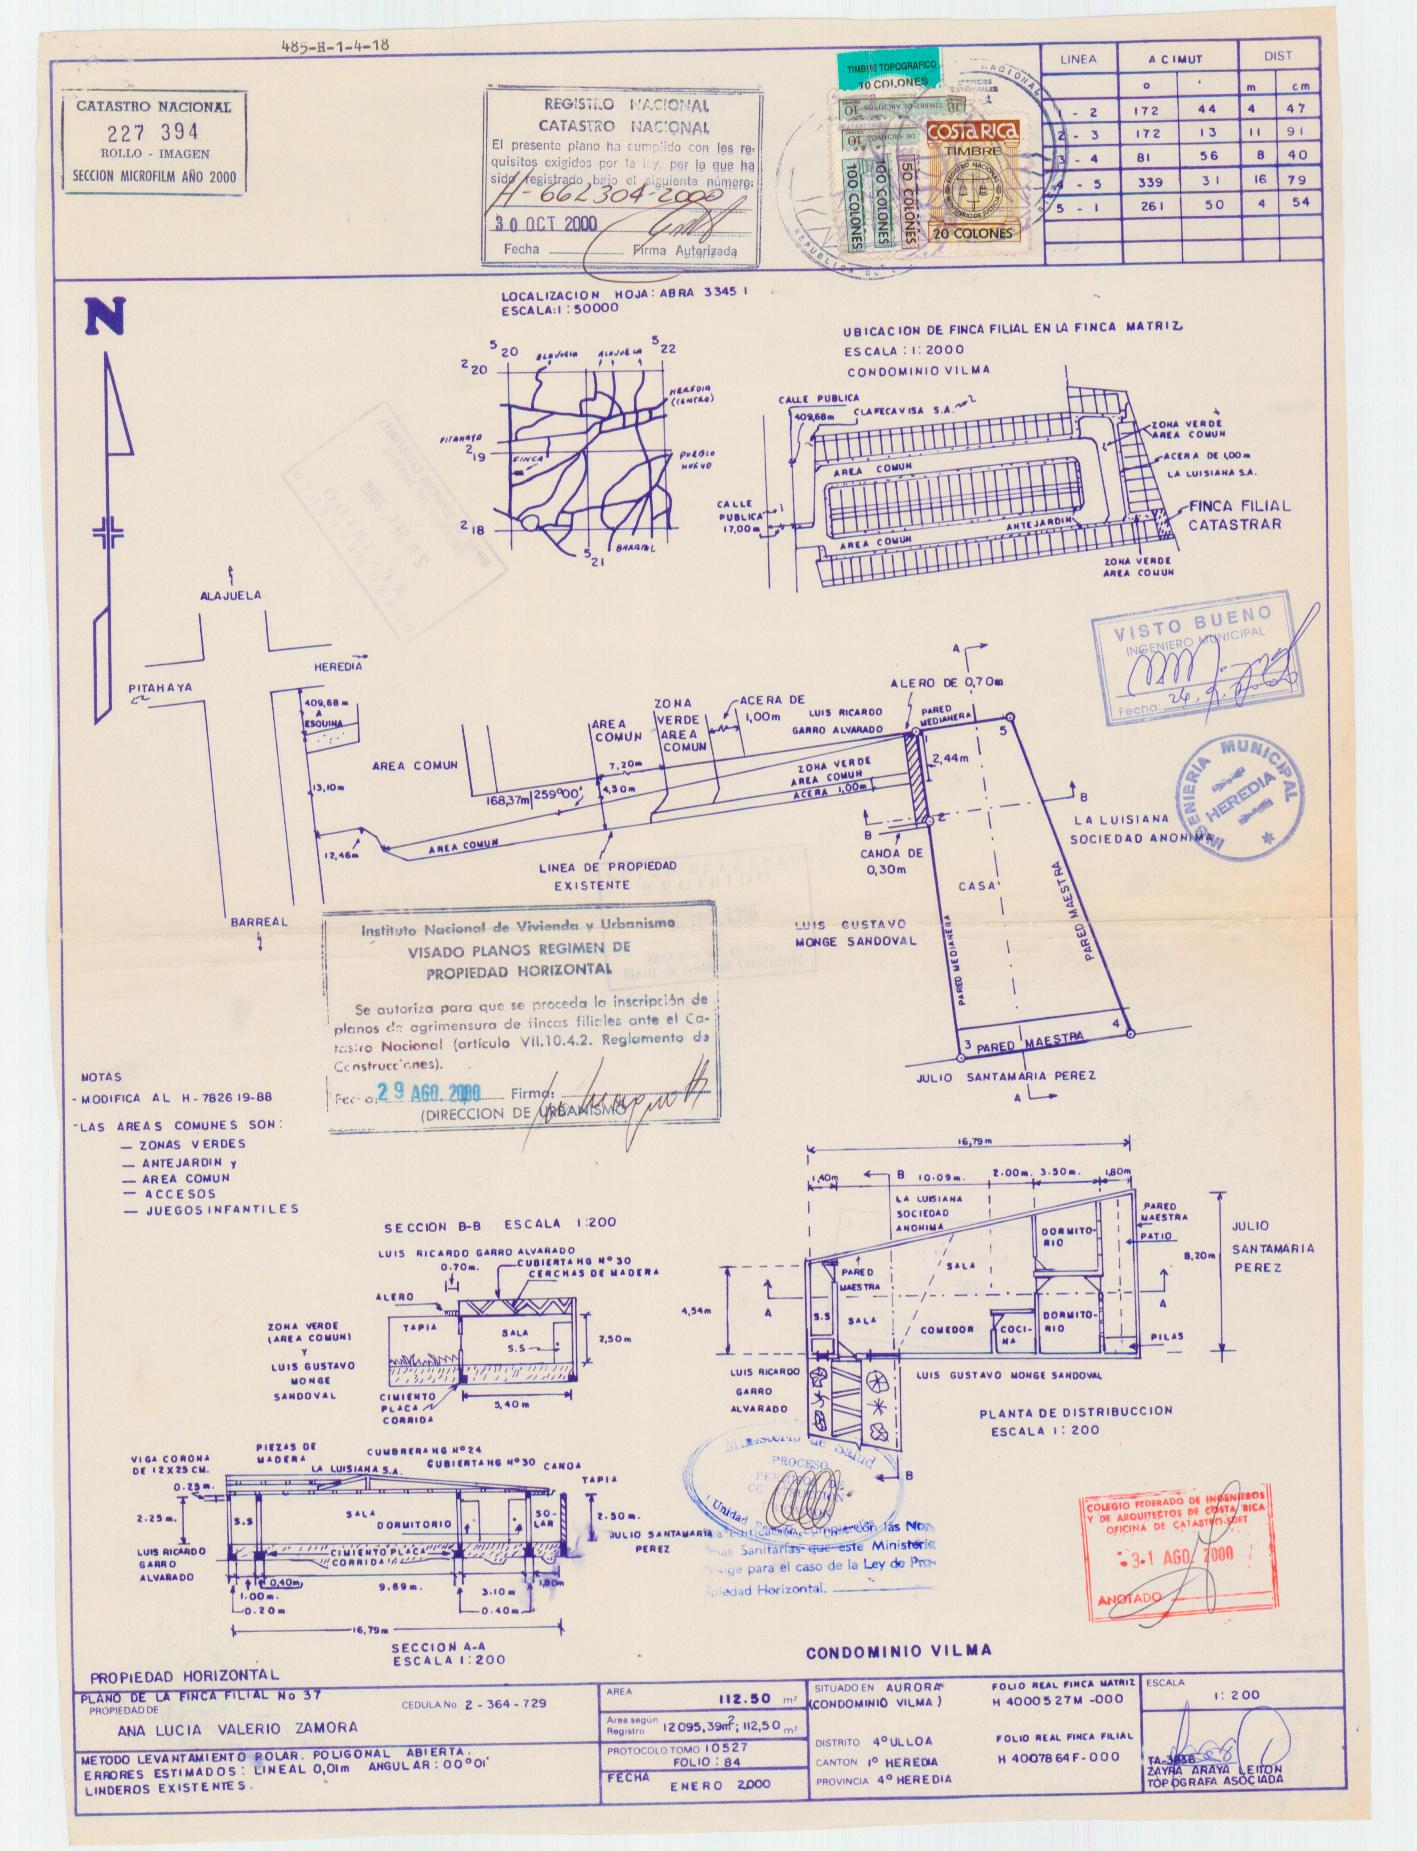 485-H-1-4-18
CATASTRO NACIONAL
227 394
ROLLO - IMAGEN
SECCION MICROFILM AÑO 2000
REGISTRO NACIONAL
CATASTRO NACIONAL
El presente plano ha cumplido con los re-
quisitos exigidos por la ley, por lo que ha
sido registrado bajo el siguiente número:
H-662304-2000
30 OCT 2000
Fecha Firma Autorizada
TIMBRE TOPOGRAFICO
10 COLONES
COSTA RICA
TIMBRE
20 COLONES
100 COLONES
100 COLONES
50 COLONES
LINEA ACIMUT DIST
o ' m cm
1 - 2 172 44 4 47
2 - 3 172 13 11 91
3 - 4 81 56 8 40
4 - 5 339 31 16 79
5 - 1 261 50 4 54
N
LOCALIZACION HOJA: ABRA 3345 I
ESCALA: 1 : 50000
5 20 ALAJUELA ALAJUELA 5 22
2 20
HEREDIA
(CENTRO)
PITAHAYA
2 19
FINCA
PUEBLO
NUEVO
2 18
5 21
BARREAL
UBICACION DE FINCA FILIAL EN LA FINCA MATRIZ
ESCALA : 1: 2000
CONDOMINIO VILMA
CALLE PUBLICA
409,68m
CLAFECAVISA S.A.
ZONA VERDE
AREA COMUN
ACERA DE 1,00m
LA LUISIANA S.A.
AREA COMUN
CALLE
PUBLICA
17,00m
ANTEJARDIN
AREA COMUN
FINCA FILIAL
CATASTRAR
ZONA VERDE
AREA COMUN
ALAJUELA
HEREDIA
PITAHAYA
409,68 m
A
ESQUINA
13,10m
12,46m
BARREAL
AREA COMUN
168,37m 259°00'
AREA COMUN
AREA
COMUN
ZONA
VERDE
AREA
COMUN
ACERA DE
1,00m
7,20m
4,50m
LINEA DE PROPIEDAD
EXISTENTE
LUIS RICARDO
GARRO ALVARADO
ZONA VERDE
AREA COMUN
ACERA 1,00m
ALERO DE 0,70m
PARED
MEDIANERA
A
1
5
2,44m
2
B
B
CANOA DE
0,30m
LA LUISIANA
SOCIEDAD ANONIMA
CASA
PARED MAESTRA
PARED MEDIANERA
LUIS GUSTAVO
MONGE SANDOVAL
3 PARED MAESTRA 4
JULIO SANTAMARIA PEREZ
A
VISTO BUENO
INGENIERO MUNICIPAL
Fecha:
INGENIERIA MUNICIPAL
HEREDIA
Instituto Nacional de Vivienda y Urbanismo
VISADO PLANOS REGIMEN DE
PROPIEDAD HORIZONTAL
Se autoriza para que se proceda la inscripción de
planos de agrimensura de fincas filiales ante el Ca-
tastro Nacional (artículo VII.10.4.2. Reglamento de
Construcciones).
Fecha: 29 AGO. 2000 Firma:
(DIRECCION DE URBANISMO
NOTAS
- MODIFICA AL H - 782619-88
-LAS AREAS COMUNES SON:
— ZONAS VERDES
— ANTEJARDIN y
— AREA COMUN
— ACCESOS
— JUEGOS INFANTILES
SECCION B-B ESCALA 1:200
LUIS RICARDO GARRO ALVARADO
0.70m. CUBIERTA HG Nº 30
CERCHAS DE MADERA
ALERO
TAPIA
SALA
S.S
2,50m
ZONA VERDE
(AREA COMUN)
Y
LUIS GUSTAVO
MONGE
SANDOVAL
CIMIENTO
PLACA
CORRIDA
5,40m
16,79m
1,40m B 10.09m. 2.00m. 3.50m. 1,80m
LA LUISIANA
SOCIEDAD
ANONIMA
DORMITO-
RIO
PARED
MAESTRA
PATIO
JULIO
SANTAMARIA
PEREZ
8,20m
PARED
MAESTRA
SALA
4,54m
A
A
S.S
SALA
COMEDOR
COCI-
NA
DORMITO-
RIO
PILAS
LUIS RICARDO
GARRO
ALVARADO
LUIS GUSTAVO MONGE SANDOVAL
B
PLANTA DE DISTRIBUCCION
ESCALA 1: 200
VIGA CORONA
DE 12X25 CM.
PIEZAS DE
MADERA
LA LUISIANA S.A.
CUMBRERA HG Nº 24
CUBIERTA HG Nº 30 CANOA
TAPIA
0.25m.
2.25m.
S.S
SALA
DORMITORIO
SO-
LAR
2.50m.
JULIO SANTAMARIA
PEREZ
LUIS RICARDO
GARRO
ALVARADO
CIMIENTO PLACA
CORRIDA
0,40m
9.69m.
3.10m
1,80m
1.00m.
0.20m
0.40m
16,79m
SECCION A-A
ESCALA 1:200
Ministerio de Salud
PROCESO
Sanitarias que este Ministerio
exige para el caso de la Ley de Pro-
piedad Horizontal.
COLEGIO FEDERADO DE INGENIEROS
Y DE ARQUITECTOS DE COSTA RICA
OFICINA DE CATASTRO-SOFT
31 AGO. 2000
ANOTADO
CONDOMINIO VILMA
PROPIEDAD HORIZONTAL
PLANO DE LA FINCA FILIAL No 37
PROPIEDAD DE
CEDULA No. 2 - 364 - 729
ANA LUCIA VALERIO ZAMORA
METODO LEVANTAMIENTO POLAR. POLIGONAL ABIERTA.
ERRORES ESTIMADOS: LINEAL 0,01m ANGULAR : 00°01'
LINDEROS EXISTENTES.
AREA
112.50 m²
Area según
Registro 12095,39m²; 112,50 m²
PROTOCOLO TOMO 10527
FOLIO : 84
FECHA
ENERO 2,000
SITUADO EN AURORA
(CONDOMINIO VILMA)
DISTRITO 4º ULLOA
CANTON 1º HEREDIA
PROVINCIA 4º HEREDIA
FOLIO REAL FINCA MATRIZ
H 4000527M -000
FOLIO REAL FINCA FILIAL
H 4007864F-000
ESCALA
1: 200
TA-3838
ZAYRA ARAYA LEITON
TOPOGRAFA ASOCIADA